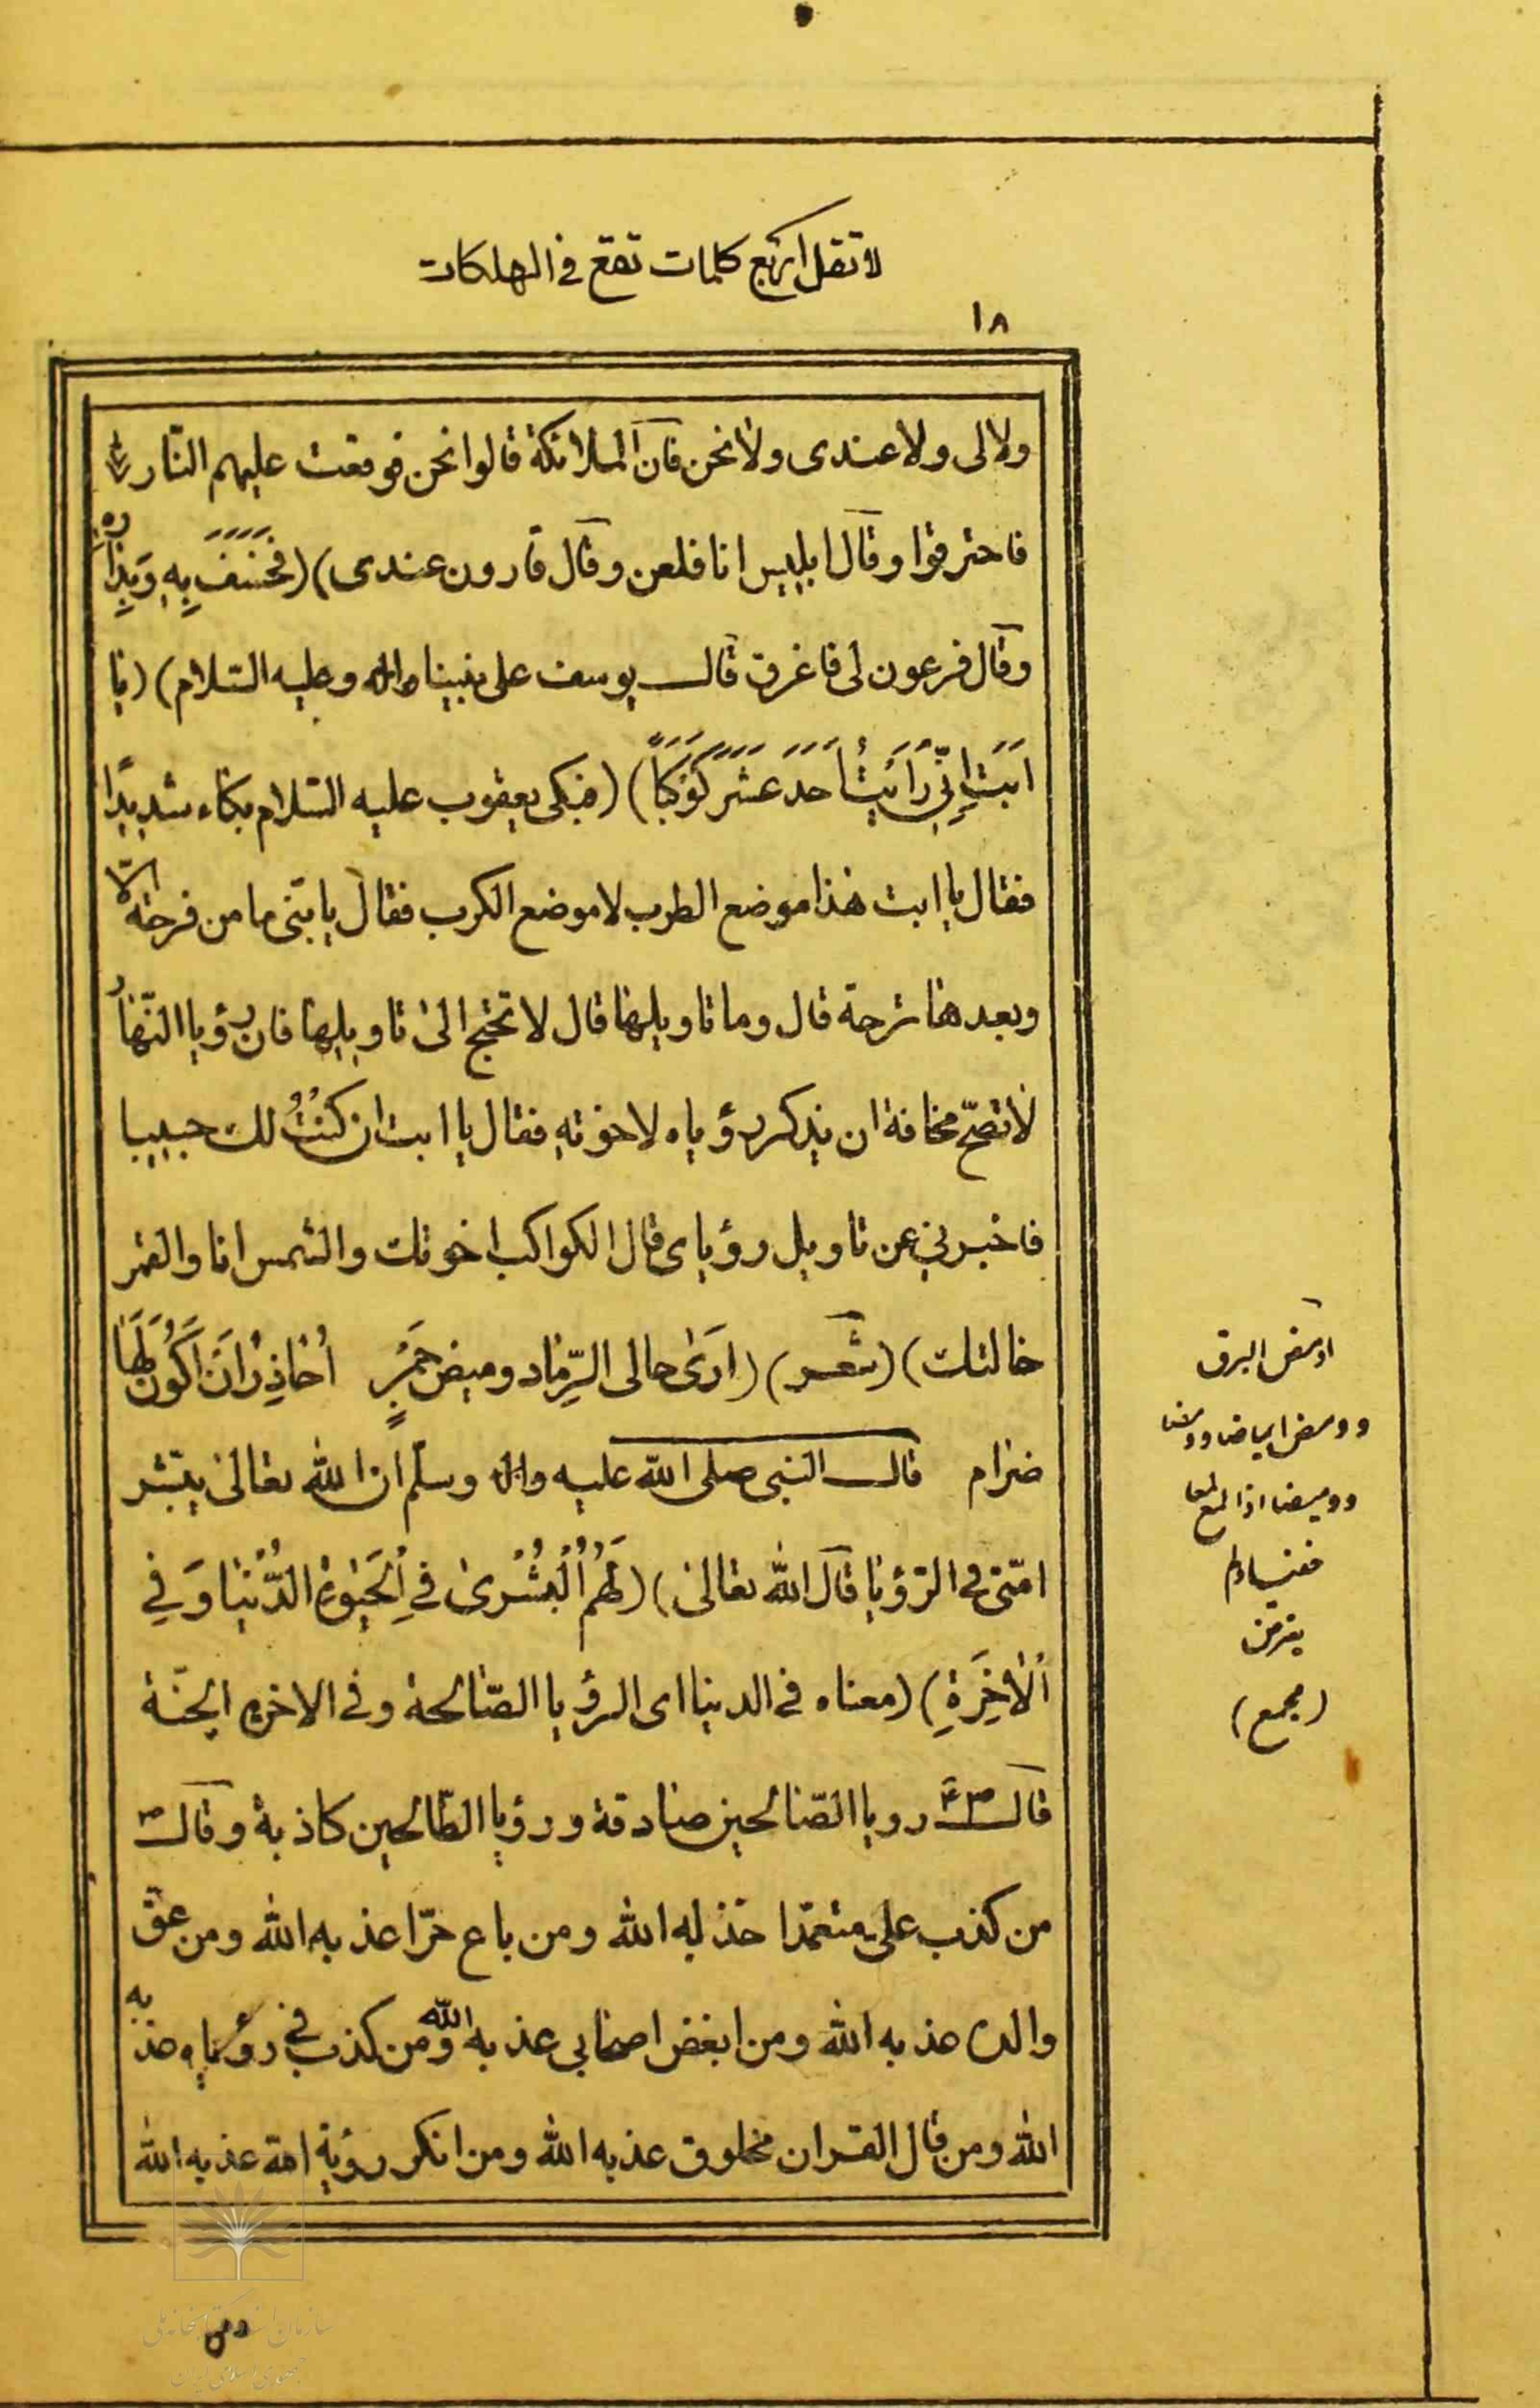 لا تقل اربع كلمات تقع فی الهلكات
١٨
ولا لی ولا عندی ولا نحن فان الملائكة قالوا نحن فوقعت علیهم النار
فاحترقوا وقال ابلیس انا فلعن وقال قارون عندی) (فَخَسَفَ بِهِ وَبِدٰارِه
وقال فرعون لی فاغرق قال یوسف علی نبینا واله وعلیه السّلام) (یا
اَبَتِ اِنّی رَاَیْتُ اَحَدَ عَشَرَ كَوْكَباً) (فبكی یعقوب علیه السّلام بكاء شدیدًا
فقال یا ابت هٰذا موضع الطرب لا موضع الكرب فقال یا بنّی ما من فرحة الّا
وبعدها ترحة قال وما تاویلها قال لا تحتج الی تاویلها فان رؤیا النّهار
لا تصحّ مخافة ان یذكر رؤیاه لاخوته فقال یا ابت ان كنتُ لك حبیبا
فاخبرنی عن تاویل رؤیای قال الكواكب اخوتك والشمس انا والقمر
خالتك) (شعر) (اریٰ حالی الرّماد ومیض جَمْرٍ اُحٰاذِرُ اَنْ اَكُونَ لَهٰا
ضرام قال النبی صلی الله علیه واله وسلّم ان الله تعالیٰ یبشر
امّتی فی الرّؤیا قال الله تعالیٰ) (لَهُمُ الْبُشْریٰ فِی الْحَیٰوةِ الدُّنْیٰا وَفِی
الْاٰخِرَةِ) (معناه فی الدنیا ای الرؤیا الصّالحة وفی الاخرة الجنّة
قال ص رویا الصّالحین صادقة ورؤیا الطّالحین كاذبة وقال ص
من كذب علی متعمّدا خذله الله ومن باع حرّا عذبه الله ومن عقّ
والده عذبه الله ومن ابغض اصحابی عذبه الله ومن كذب فی رؤیاه عذبه
الله ومن قال القران مخلوق عذبه الله ومن انكر رؤیة امة عذبه الله
اومض البرق
وومض ایماضا وومضا
وومیضا اذا لمع لمعا
خفیفا ولم
یعترض
(مجمع)
ومن
سازمان اسناد و کتابخانه ملی
جمهوری اسلامی ایران